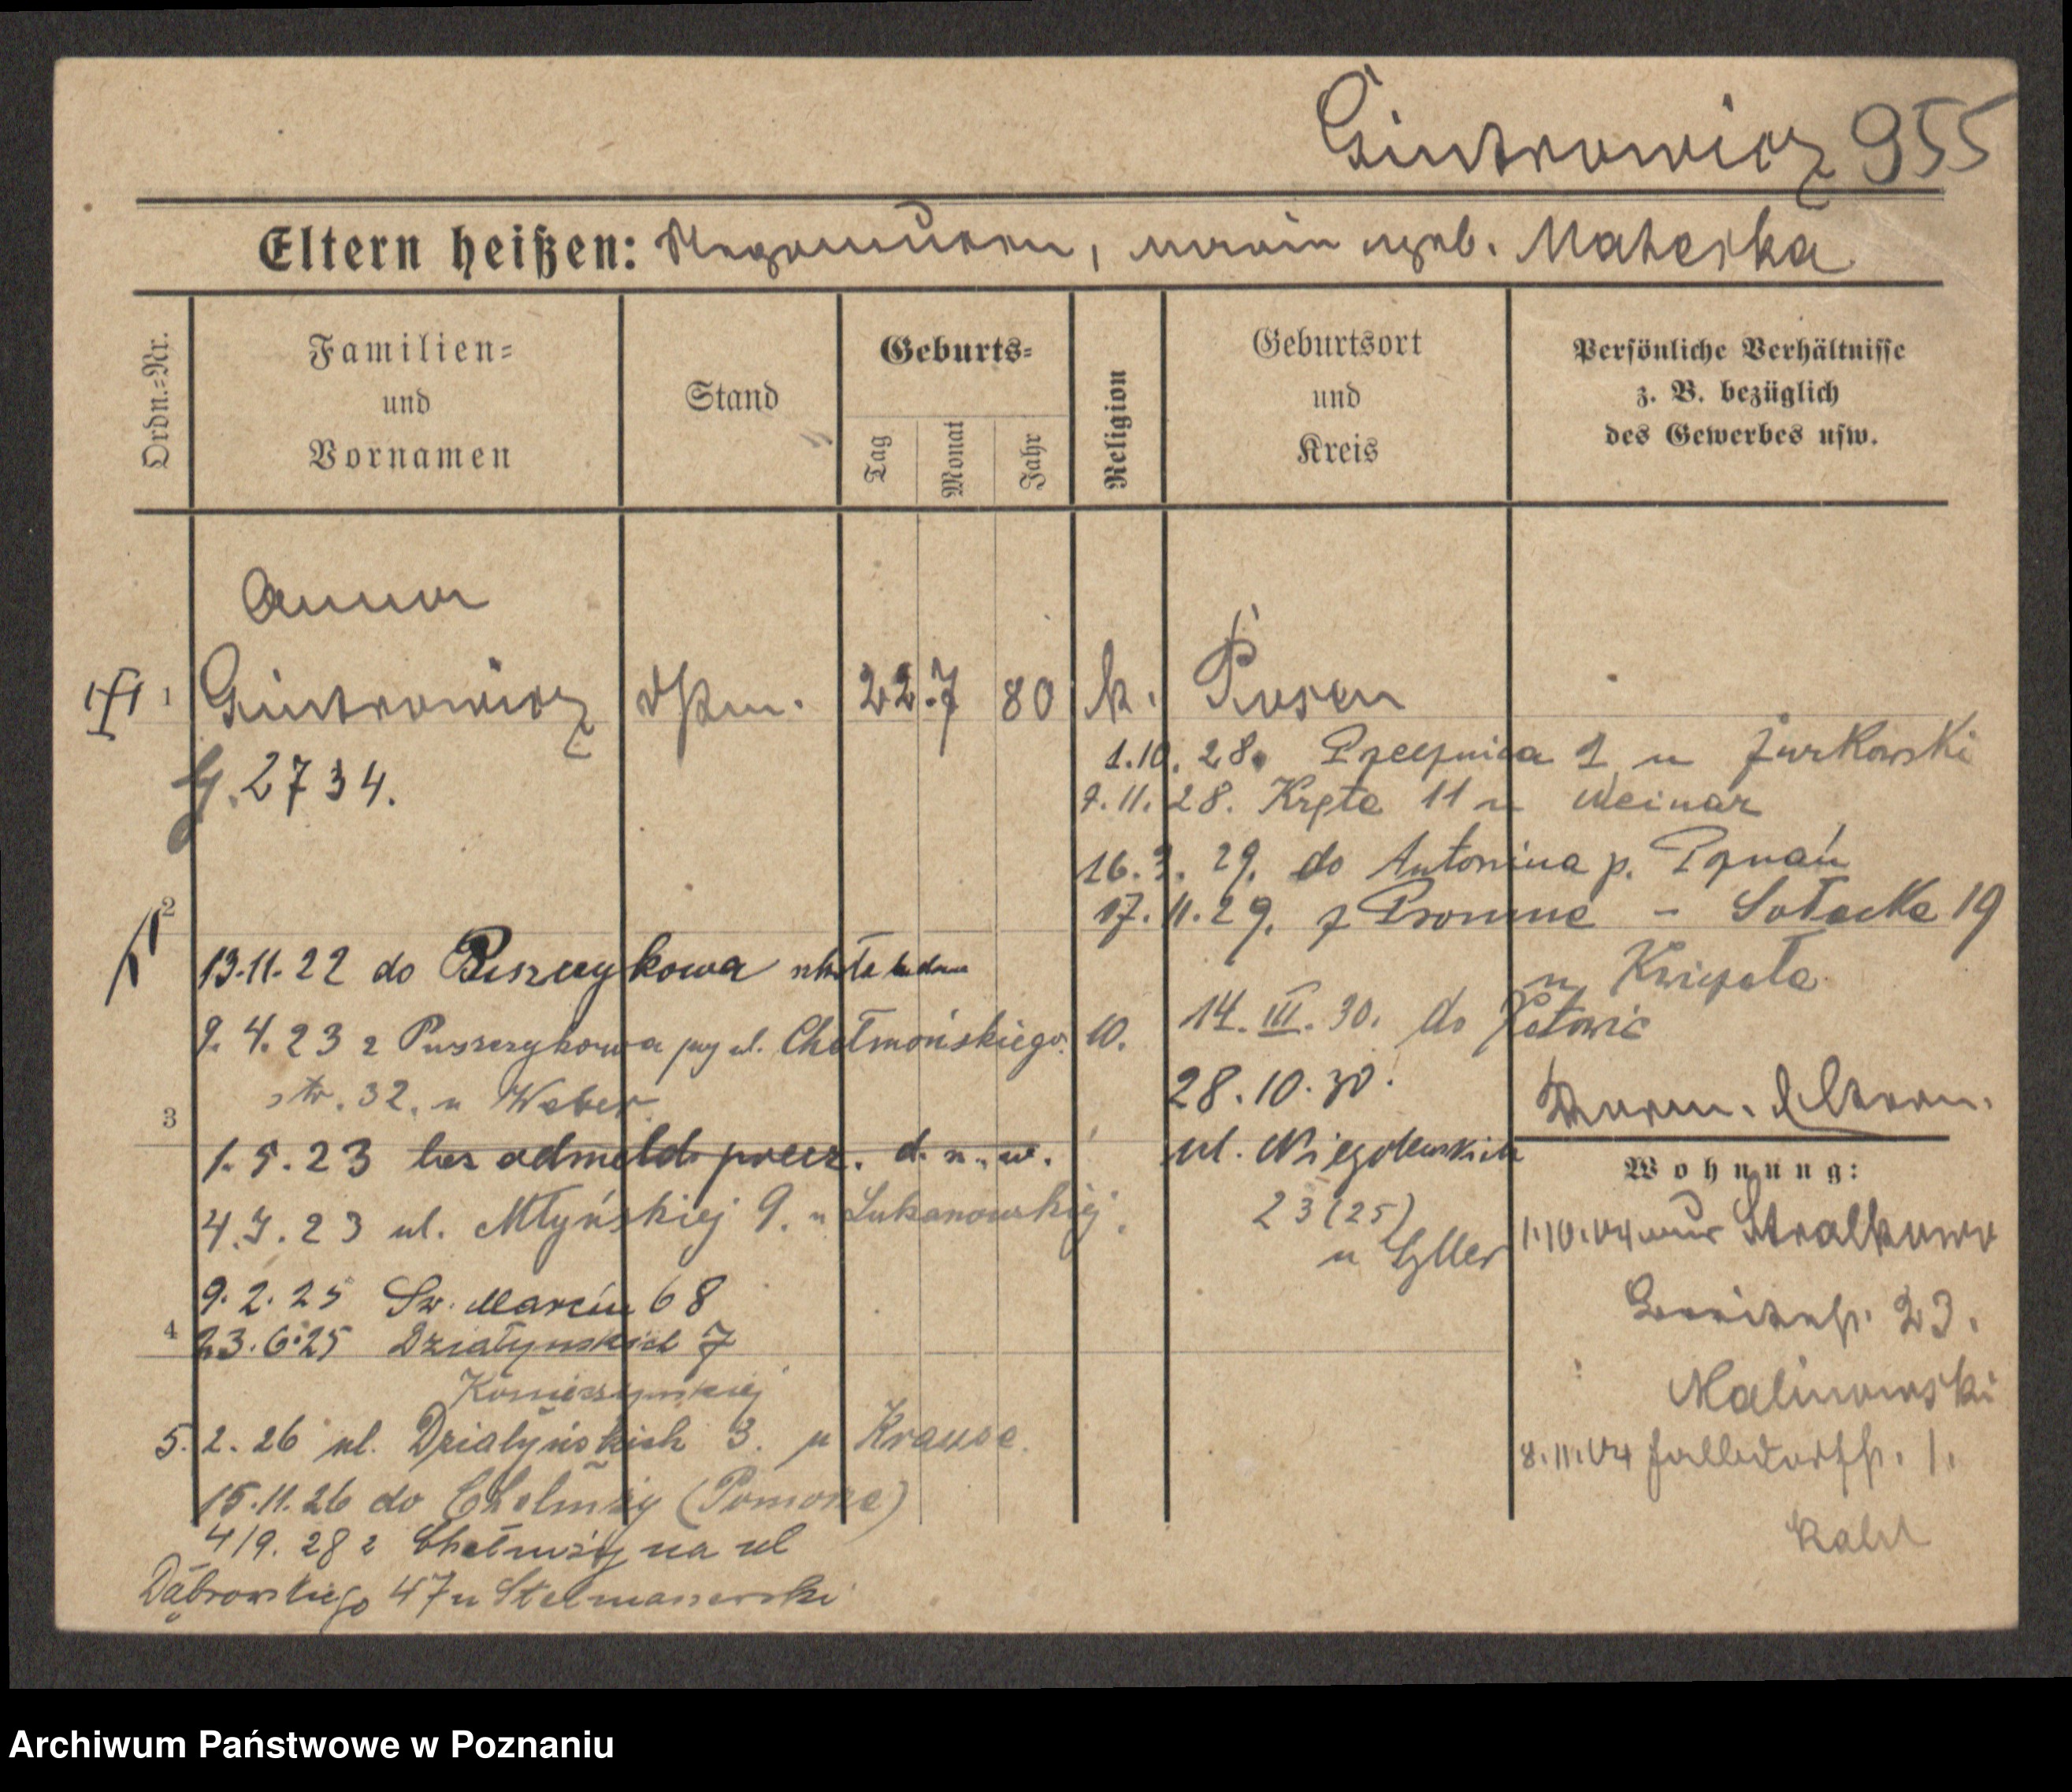 Gintrowicz 955
Eltern heißen: geb. Materka
Ordn.-Nr.
Familien-
und
Vornamen
Stand
Geburts-
Tag
Monat
Jahr
Religion
Geburtsort
und
Kreis
Persönliche Verhältnisse
z. B. bezüglich
des Gewerbes usw.
Anna
1 Gintrowicz 22. 7 80 k. Posen
2734.
1.10.28. 1 u Jurkowski
9.11.28. Kręta 11 u Weimar
16.3.29. do Antonina p. Poznań
17.11.29. z - Sołacka 19
u
14.III.30. do
28.10.30.
ul. Niegolewskich
23 (25)
u
2
13.11.22 do Puszczykowa
9.4.23 z Puszczykowa przy ul. Chełmońskiego 10.
str. 32. u Weber
3
1.5.23 bez odmeld. przez. d. n. w.
4.7.23 ul. Młyńskiej 9. u Łukanowskiej.
9.2.25 Św. Marcin 68
4
23.6.25 Działyńskich 7
5.2.26 ul. Działyńskich 3. u Krause
15.11.26 do Chełmży (Pomorze)
4/9.28 z Chełmży na ul
Dąbrowskiego 47 u Stelmaszewski
Wohnung:
1.10.04 Stralkowo
23.
Malinowski
8.11.04 1.
Kahl
Archiwum Państwowe w Poznaniu